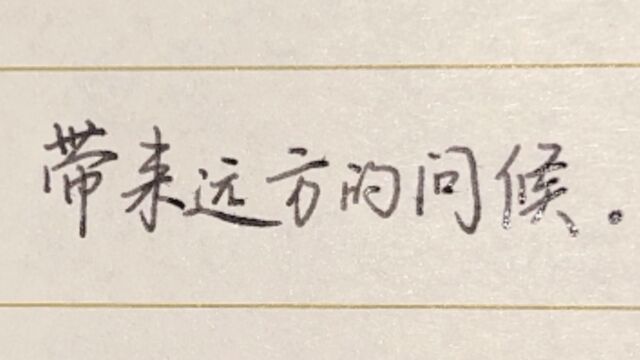 带来远方的问候.